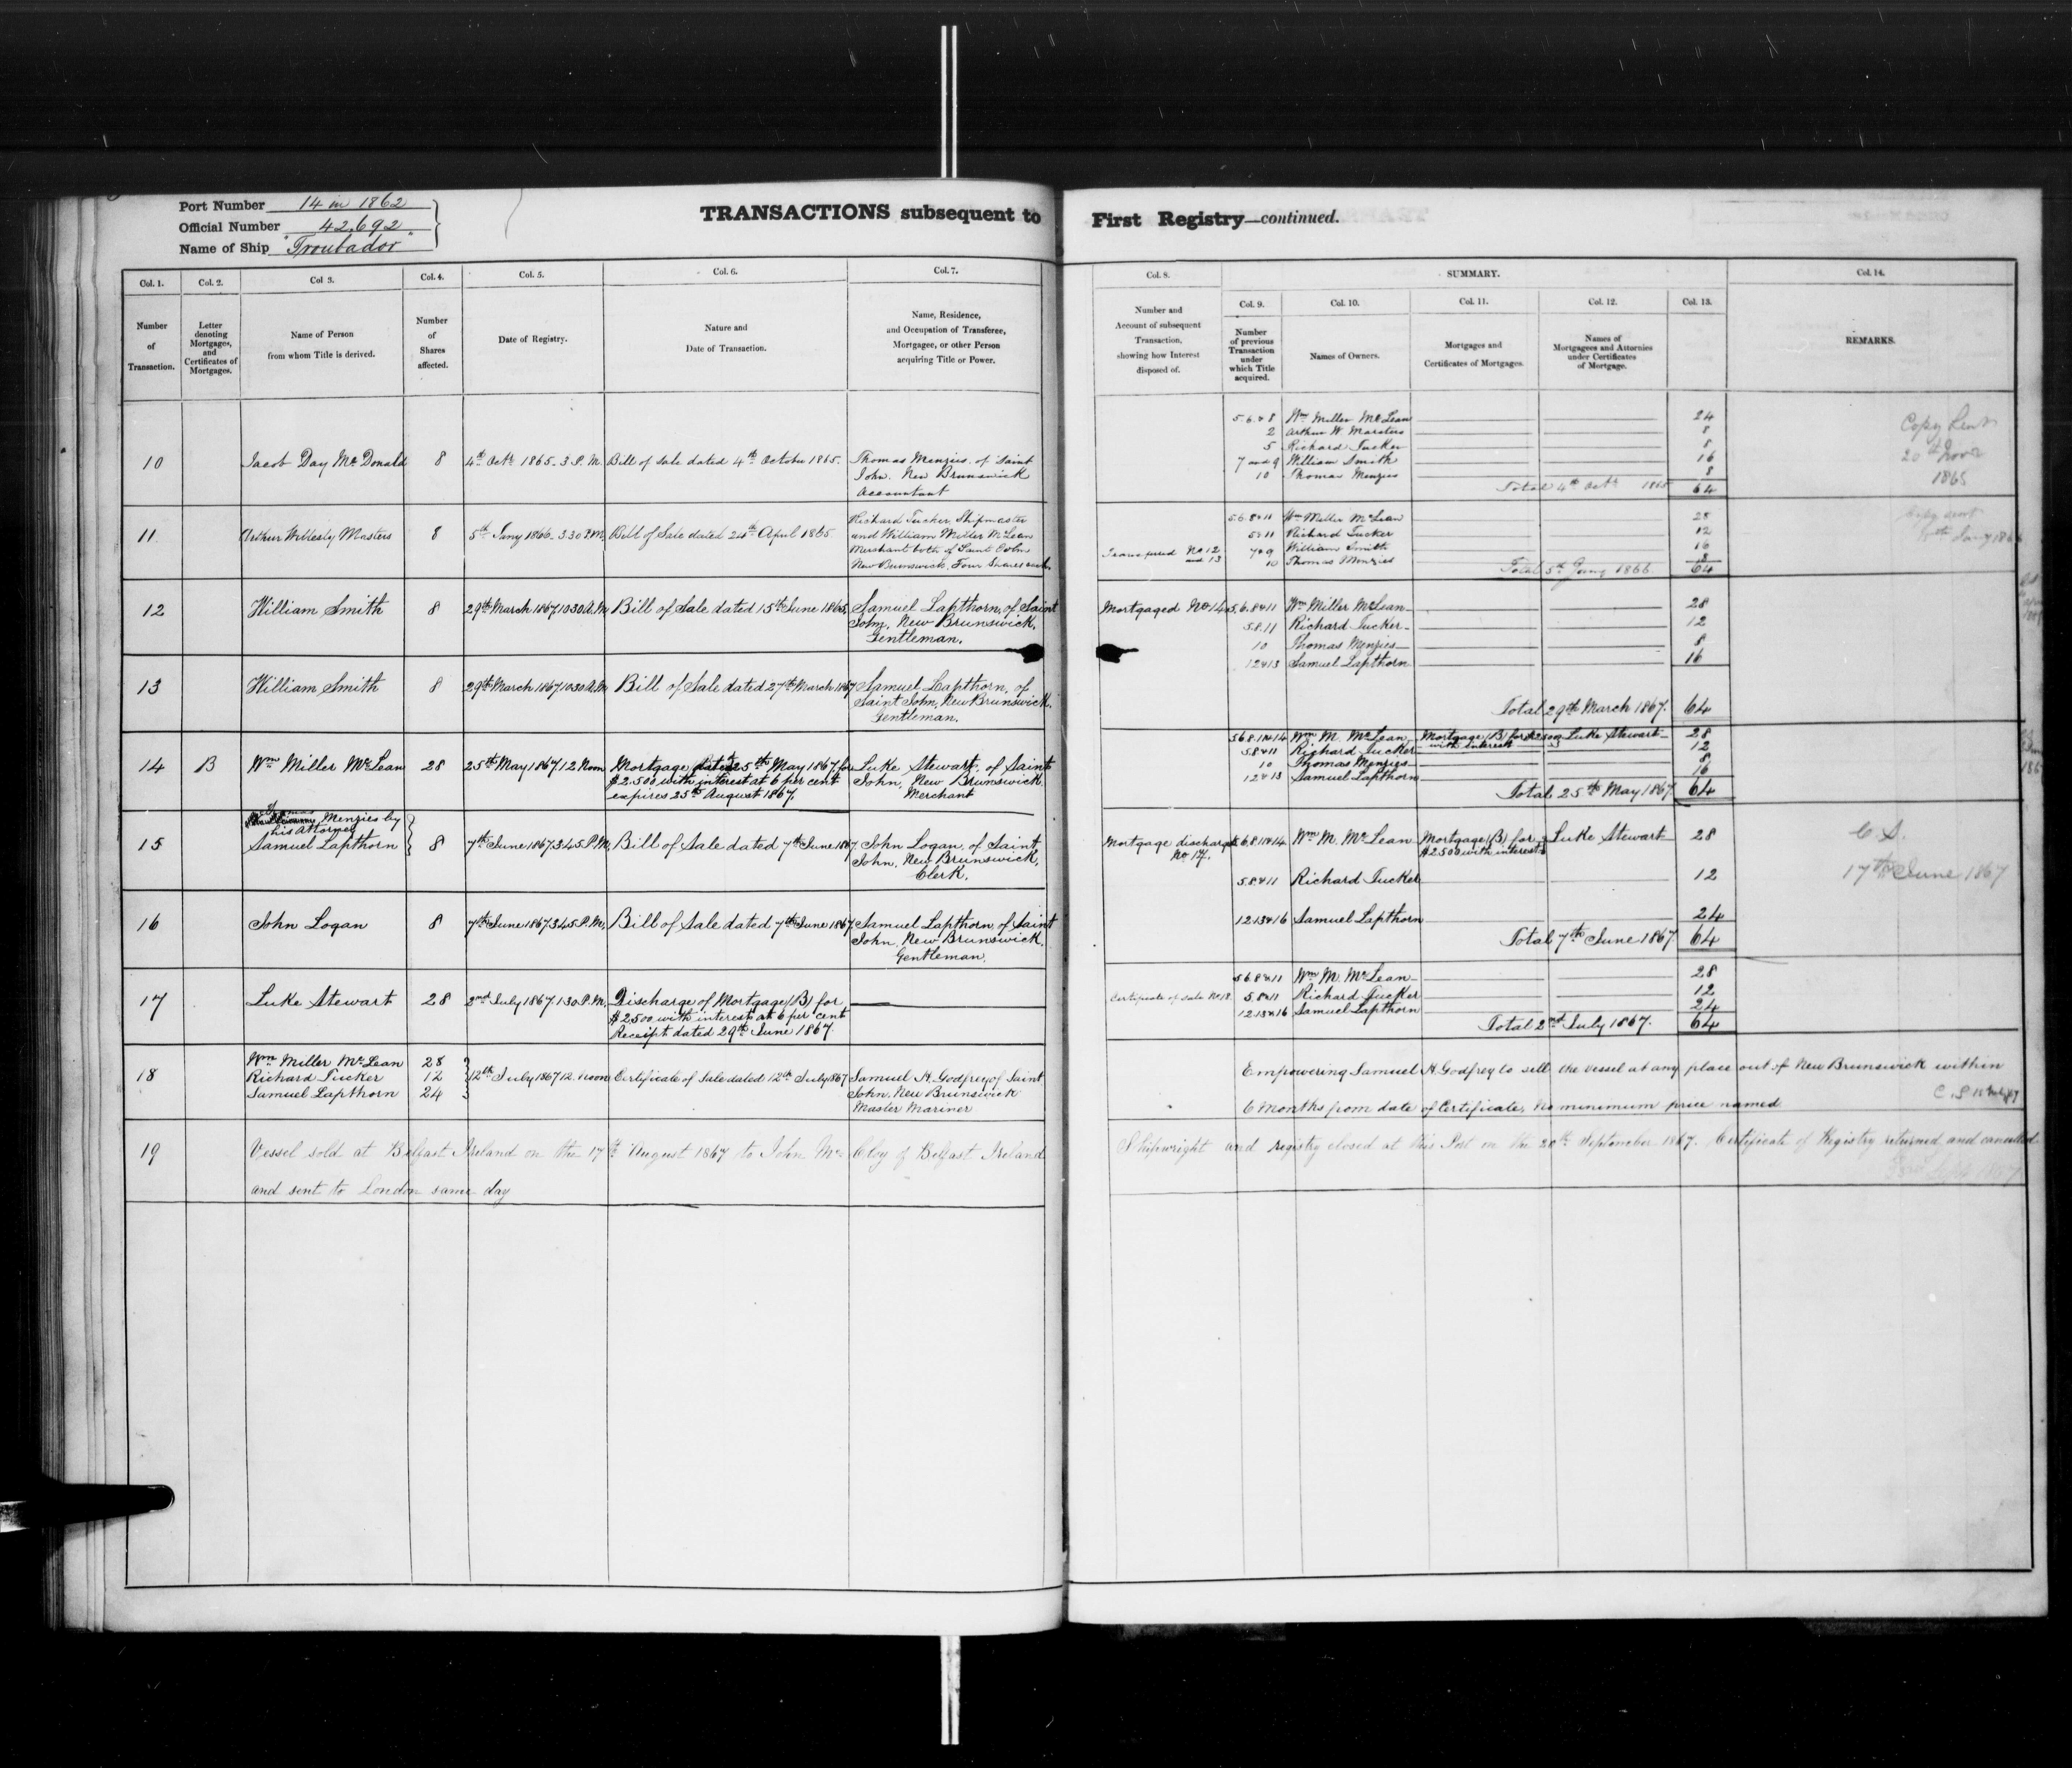 Port Number 14 in 1862
Official Number 42.692
Name of Ship "Troubador"
TRANSACTIONS subsequent to First Registry—continued.
Col. 1. Col. 2. Col 3. Col. 4. Col. 5. Col. 6. Col. 7.
Number of Transaction.
Letter denoting Mortgages, and Certificates of Mortgages.
Name of Person from whom Title is derived.
Number of Shares affected.
Date of Registry.
Nature and Date of Transaction.
Name, Residence, and Occupation of Transferee, Mortgagee, or other Person acquiring Title or Power.
Col. 8. SUMMARY. Col. 14.
Col. 9. Col. 10. Col. 11. Col. 12. Col. 13.
Number and Account of subsequent Transaction, showing how Interest disposed of.
Number of previous Transaction under which Title acquired.
Names of Owners.
Mortgages and Certificates of Mortgages.
Names of Mortgagees and Attornies under Certificates of Mortgage.
REMARKS.
10 Jacob Day McDonald 8 4th Octr 1865. 3 P.M. Bill of Sale dated 4th October 1865. Thomas Menzies of Saint
John. New Brunswick
Accountant
5.6.&8 Wm Miller McLean 24
2 Arthur W. Marsters 8
5 Richard Tucker 8
7 and 9 William Smith 16
10 Thomas Menzies 8
Total 4th Octr 1865 64
Copy Sent
20th Novr
1865
11. Arthur Wellesly Masters 8 5th Jany 1866. 3.30 P.M. Bill of Sale dated 24th April 1865 Richard Tucker, Shipmaster
and William Miller McLean
Merchant both of Saint John
New Brunswick. Four Shares each
5.6.8&11 Wm Miller McLean 28
5&11 Richard Tucker 12
Transferred No 12 and 13 7&9 William Smith 16
10 Thomas Menzies 8
Total 5th Jany 1866. 64
Copy sent
12 William Smith 8 29th March 1867 10.30 A.M. Bill of Sale dated 15th June 1865, Samuel Lapthorn, of Saint
John, New Brunswick,
Gentleman.
Mortgaged No 14 5.6.8&11 Wm Miller McLean 28
5.8.11 Richard Tucker 12
10 Thomas Menzies 8
12&13 Samuel Lapthorn 16
13 William Smith 8 29th March 1867 10.30 A.M. Bill of Sale dated 27th March 1867 Samuel Lapthorn, of
Saint John, New Brunswick.
Gentleman.
Total 29th March 1867. 64
14 B Wm Miller McLean 28 25th May 1867 12 Noon Mortgage dated 25th May 1867 for
$2.500 with interest at 6 per cent
expires 25th August 1867.
Luke Stewart, of Saint
John, New Brunswick
Merchant
5.6.8.11&14 Wm M. McLean Mortgage (B) for $2500 with interest Luke Stewart 28
5.8&11 Richard Tucker 12
10 Thomas Menzies 8
12&13 Samuel Lapthorn 16
Total 25th May 1867. 64
15 Menzies by
his Attorney
Samuel Lapthorn 8 7th June 1867 3.45 P.M. Bill of Sale dated 7th June 1867 John Logan, of Saint
John, New Brunswick,
Clerk.
Mortgage discharged No 17. 5.6.8.11&14 Wm M. McLean Mortgage (B) for $2500 with interest Luke Stewart 28
5.8&11 Richard Tucker 12
C. S.
17th June 1867
16 John Logan 8 7th June 1867 3.45 P.M. Bill of Sale dated 7th June 1867 Samuel Lapthorn, of Saint
John, New Brunswick.
Gentleman.
12.13&16 Samuel Lapthorn 24
Total 7th June 1867. 64
17 Luke Stewart 28 2nd July 1867. 1.30 P.M. Discharge of Mortgage (B) for
$2.500 with interest at 6 per cent
Receipt dated 29th June 1867.
5.6.8&11 Wm M. McLean 28
Certificate of sale No 18. 5.8&11 Richard Tucker 12
12.13&16 Samuel Lapthorn 24
Total 2nd July 1867. 64
18 Wm Miller McLean 28
Richard Tucker 12
Samuel Lapthorn 24
12th July 1867 12 Noon Certificate of Sale dated 12th July 1867 Samuel H. Godfrey of Saint
John, New Brunswick
Master Mariner
Empowering Samuel H Godfrey to sell the vessel at any place out of New Brunswick within
6 Months from date of Certificate. No minimum price named
19 Vessel sold at Belfast Ireland on the 17th August 1867 to John Mc Cloy of Belfast Ireland
Shipwright and Registry closed at this Port on the 20th September 1867. Certificate of Registry returned and cancelled
and sent to London same day